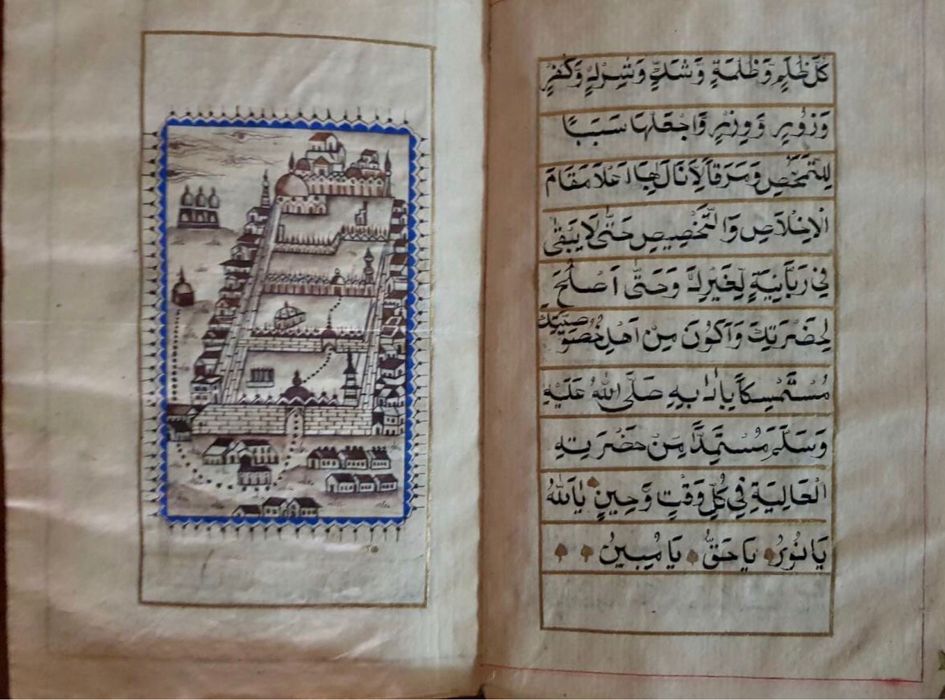 كُلَّ ظُلْمٍ وَظُلْمَةٍ وَشَكٍّ وَشِرْكٍ وَكُفْرٍ
وَزُورٍ وَوِزْرٍ وَاجْعَلْهَا سَبَبًا
لِلتَّمَحُّصِ وَمَرْقًا لِاَنَالَ بِهَا اَعْلَا مَقَامَ
الْاِخْلَاصِ وَالتَّخْصِيصِ حَتّٰى لَا يَبْقٰى
فِيَّ رَبَّانِيَّةٍ لِغَيْرِكَ وَحَتّٰى اَصْلُحَ
لِحَضْرَتِكَ وَاَكُونَ مِنْ اَهْلِ خُصُوصِيَّتِكَ
مُسْتَمْسِكًا بِاٰدَابِهِ صَلَّى اللهُ عَلَيْهِ
وَسَلَّمَ مُسْتَمِدًّا مِنْ حَضْرَتِهِ
الْعَالِيَةِ فِي كُلِّ وَقْتٍ وَحِينٍ يَا اَللهُ
يَا نُورُ يَا حَقُّ يَا مُبِينُ